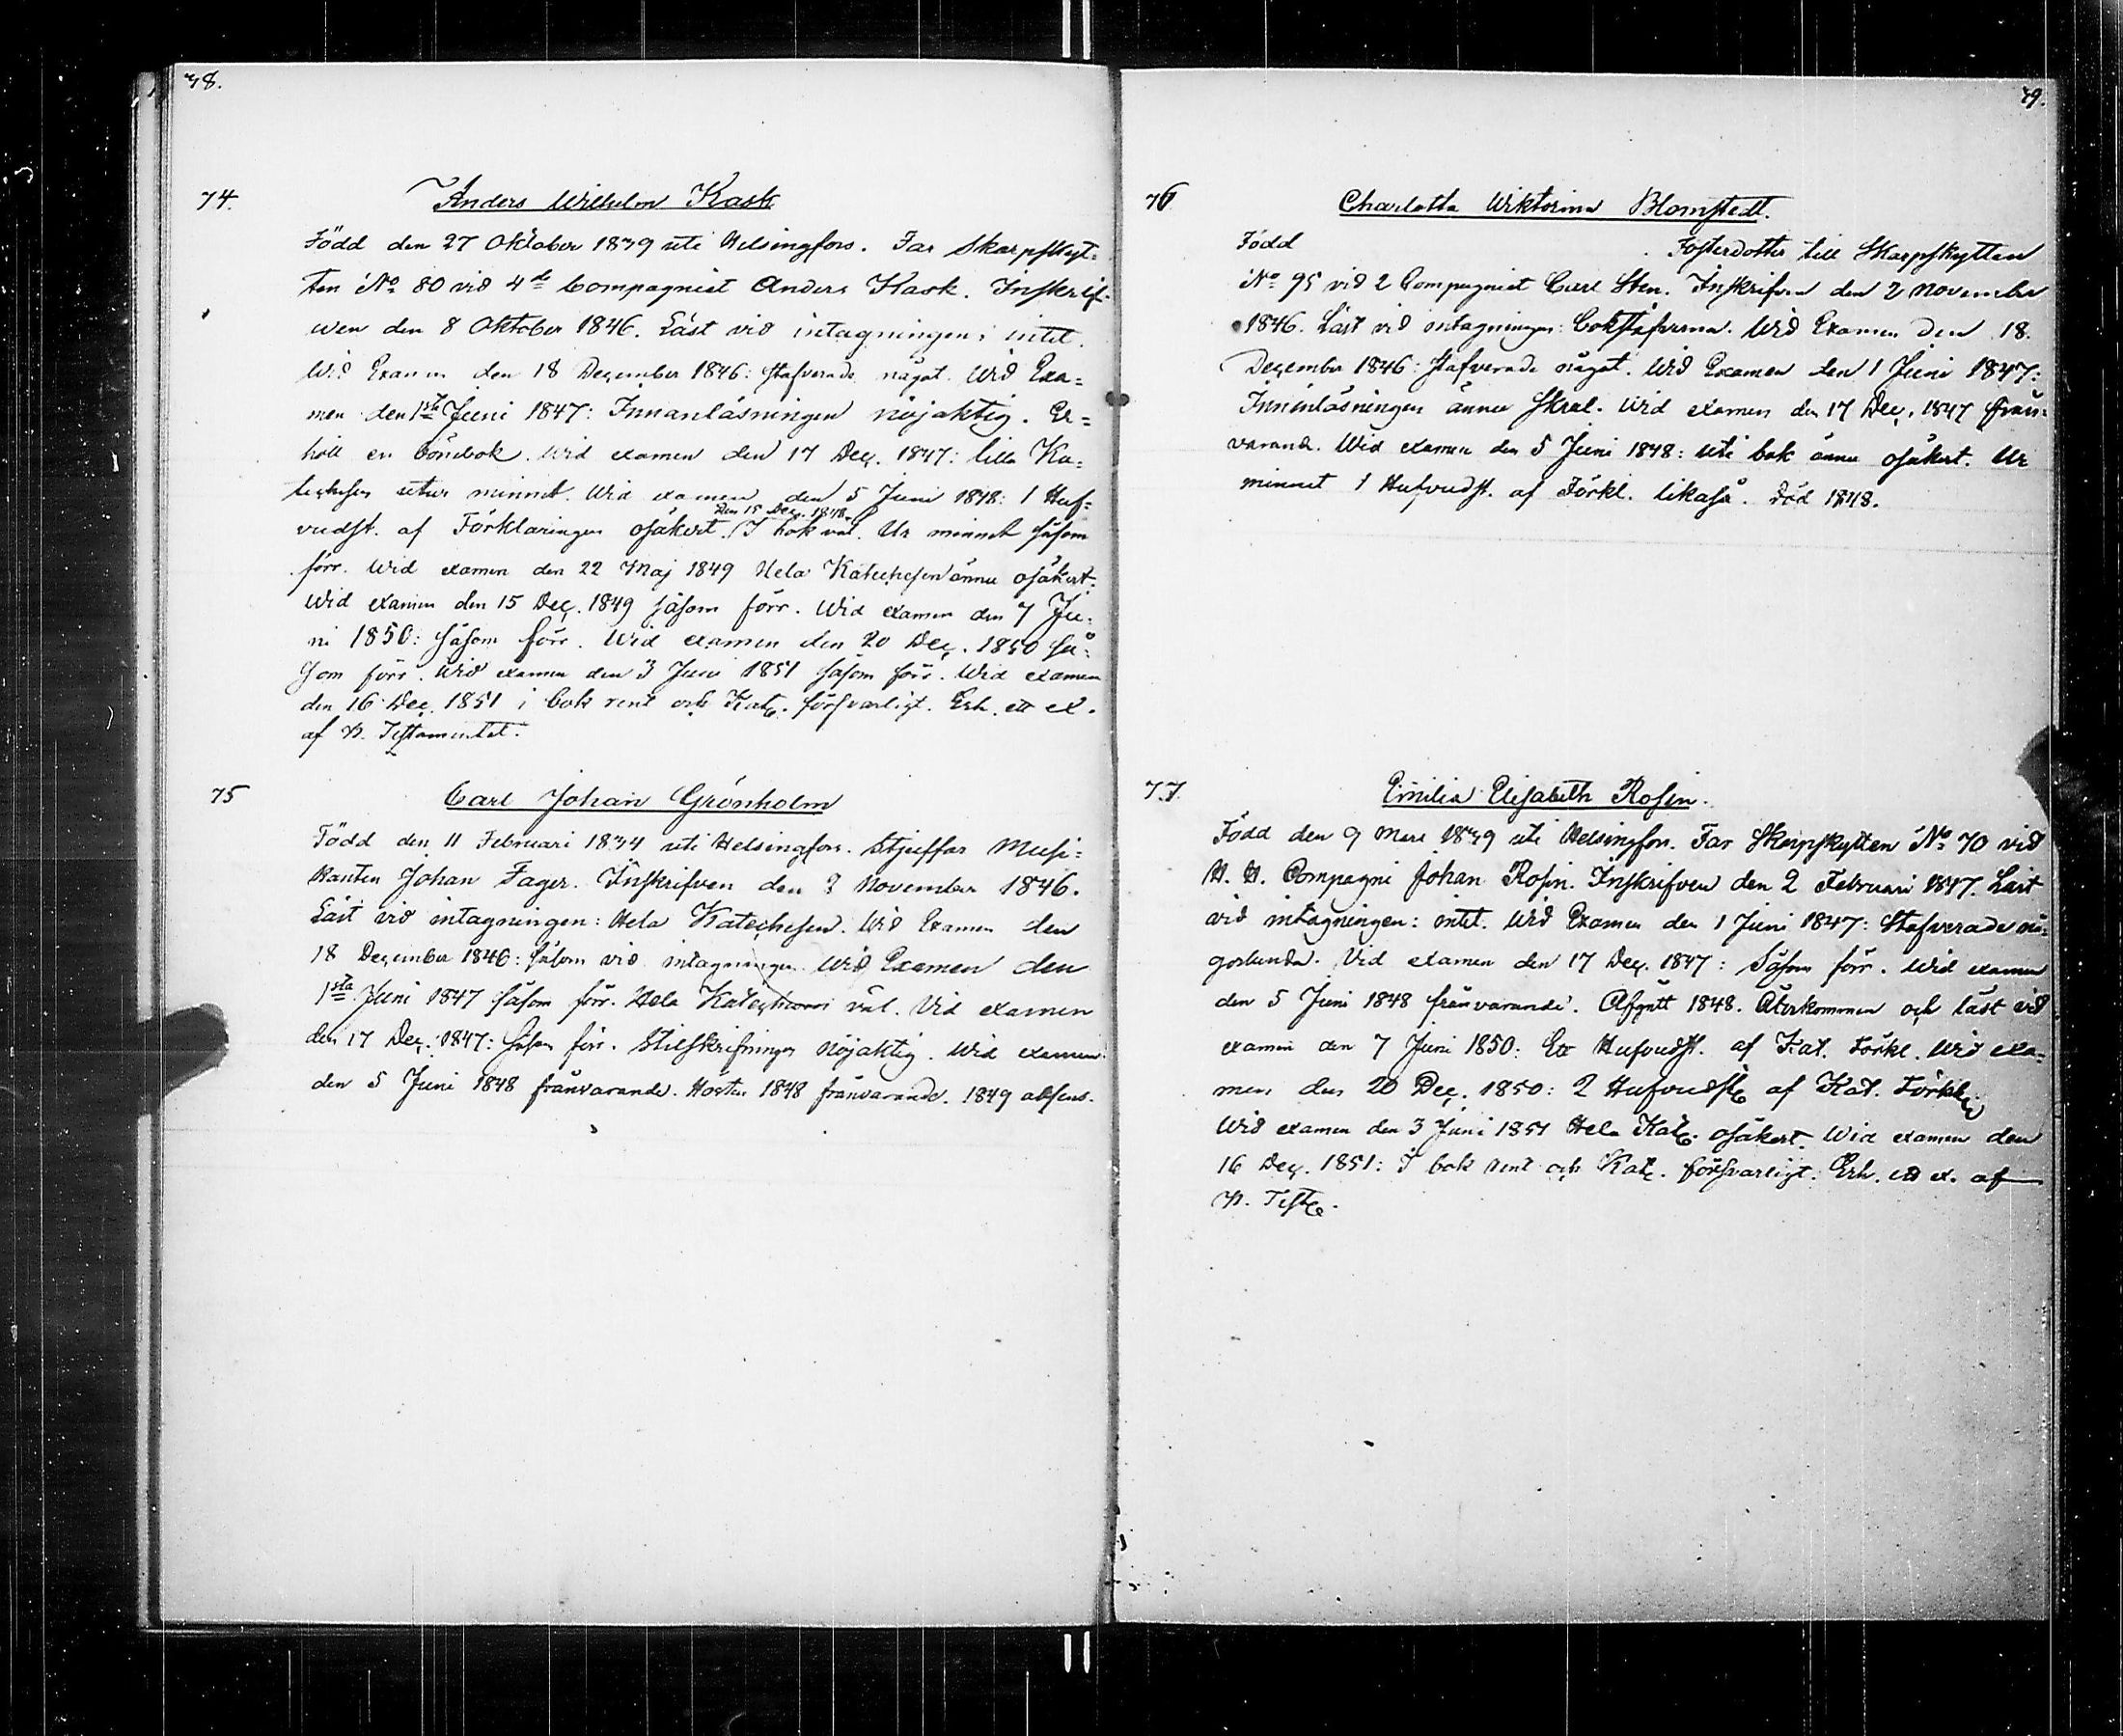 38.
74.
Anders Wilhelm Kask
Född den 27 Oktober 1839 uti Helsingfors. Far Skarpskyt=
ten No 80 vid 4de Compagniet Anders Kask. Inskrif-
wen den 8 Oktober 1846. Läst vid intagningen: intet.
Wid Examen den 18 December 1846: stafverade något. Wid Exa=
men den 1sta Juni 1847: Innanläsningen nöjaktig. Er=
höll en bönebok. Wid examen den 17 Dec. 1847: lilla Ka=
techesen utur minnet. Wid examen den 5 Juni 1848: 1 Huf=
vudst. af Förklaringen osäkert. Den 15 Dec. 1848. I bok väl. Ur minnet såsom
förr. Wid examen den 22 Maj 1849 Hela Katechesen ännu osäkert.
Wid examen den 15 Dec. 1849 såsom förr. Wid examen den 7 Ju=
ni 1850: såsom förr. Wid examen den 20 Dec. 1850 så=
som förr. Wid examen den 3 Juni 1851 såsom förr. Wid examen
den 16 Dec. 1851 i bok rent och Kat. försvarligt. Erh. ett ex.
af N. Testamentet.
75
Carl Johan Grönholm
Född den 11 Februari 1834 uti Helsingfors. Stjuffar Musi=
kanten Johan Fager. Inskrifven den 2 November 1846.
Läst vid intagningen: Hela Katechesen. Wid Examen den
18 December 1846: såsom vid intagningen. Wid Examen den
1sta Juni 1847 såsom förr. Hela väl. Vid examen
den 17 Dec. 1847: såsom förr. Stilskrifningen nöjaktig. Wid examen
den 5 Juni 1848 frånvarande. Hösten 1848 frånvarande. 1849 absens.
39.
76
Charlotta Wiktorina Blomstedt.
Född Fosterdotter till Skarpskytten
No 95 vid 2 Compagniet Carl Sten. Inskrifven den 2 November
1846. Läst vid intagningen: bokstäfverna. Wid Examen den 18.
December 1846: stafverade något. Wid Examen den 1 Juni 1847:
Innanläsningen ännu skral. Wid examen den 17 Dec. 1847 från=
varand. Wid examen den 5 Juni 1848: uti bok ännu osäkert. Ur
minnet 1 Hufvudst. af Förkl. likaså. Död 1848.
77.
Emilia Elisabeth Rosin.
Född den 9 Mars 1839 uti Helsingfors. Far Skarpskytten No 70 vid
H. H. Compagni Johan Rosin. Inskrifven den 2 Februari 1847. Läst
vid intagningen: intet. Wid Examen den 1 Juni 1847: Stafverade nå=
gorlunda. Vid examen den 17 Dec. 1847: Såsom förr. Wid examen
den 5 Juni 1848 frånvarande. Afgått 1848. Återkommen och läst vid
examen den 7 Juni 1850: Ett Hufvudst. af Kat. Förkl. Wid exa=
men den 20 Dec. 1850: 2 Hufvudst. af Kat. Förkl.
Wid examen den 3 Juni 1851 Hela Kat. osäkert. Wid examen den
16 Dec. 1851: I bok rent och Kat. försvarligt. Erh. ett ex. af
N. Test.